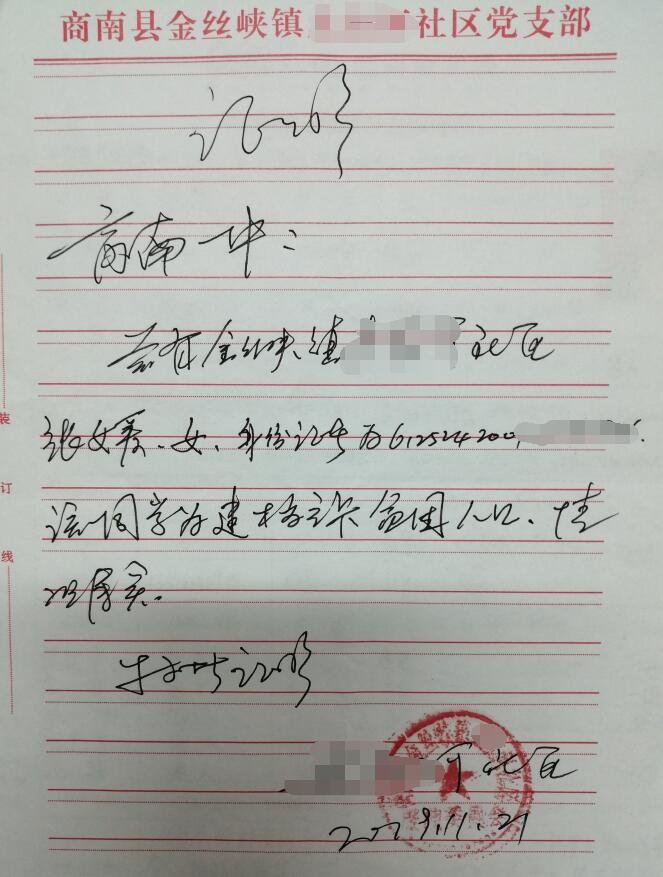 商南县金丝峡镇 一 社区党支部
证明
商南一中：
兹有金丝峡镇 社区
张文爱、女、身份证号为612524200
该同学为建档立卡贫困人口、情
况属实。
特此证明
社区
2019.11.21
装
订
线